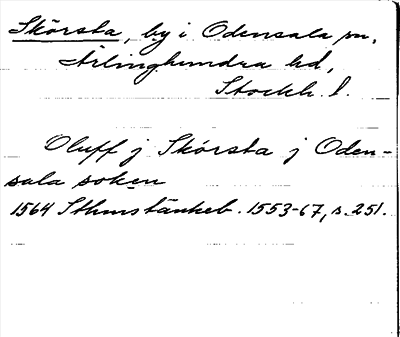 Skörsta, by i Odensala sn,
Ärlinghundra hd,
Stockh. l.
Oluff j Skörsta j Oden-
sala soken
1564 Sthmstänkeb. 1553-67, s. 251.